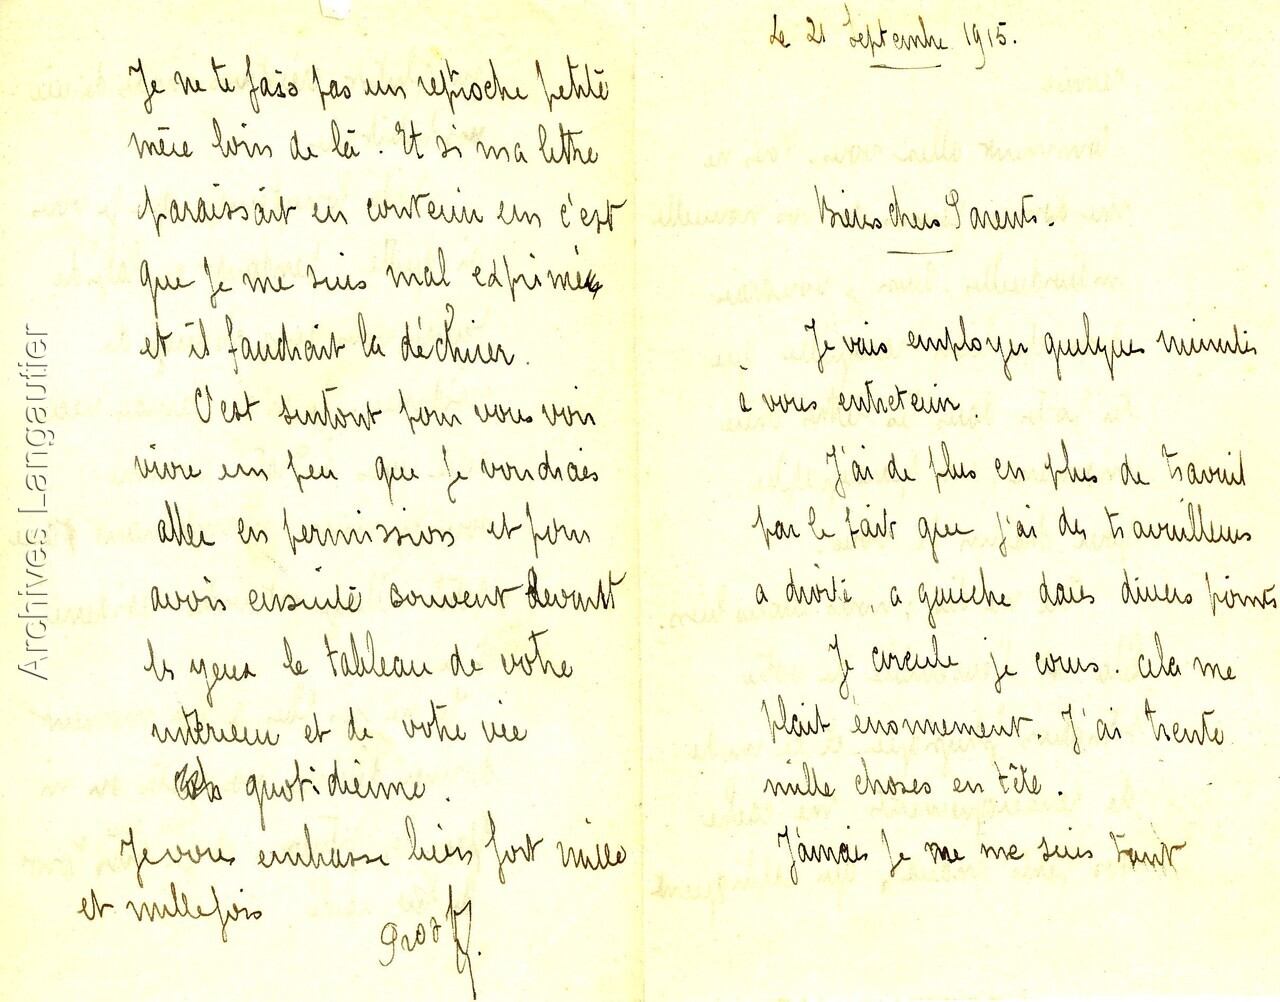 Le 21 Septembre 1915.
Biens chers Parents.
Je vais employer quelques minutes
à vous entretenir.
J'ai de plus en plus de travail
par le fait que j'ai des travailleurs
a droite, a gauche dans divers points
Je circule je cours. cela me
plait énormément. J'ai trente
mille choses en tête.
Jamais Je me me suis tant
Je ne te fais pas un reproche petite
mère loin de là. Et si ma lettre
paraissait en contenir un c'est
que Je me suis mal exprimé
et il faudrait la déchirer.
C'est surtout pour vous voir
vivre un peu que Je voudrais
aller en permission et pour
avoir ensuite souvent devant
les yeux le tableau de votre
intérieur et de votre vie
quotidienne.
Je vous embrasse bien fort mille
et mille fois
Archives Langautier